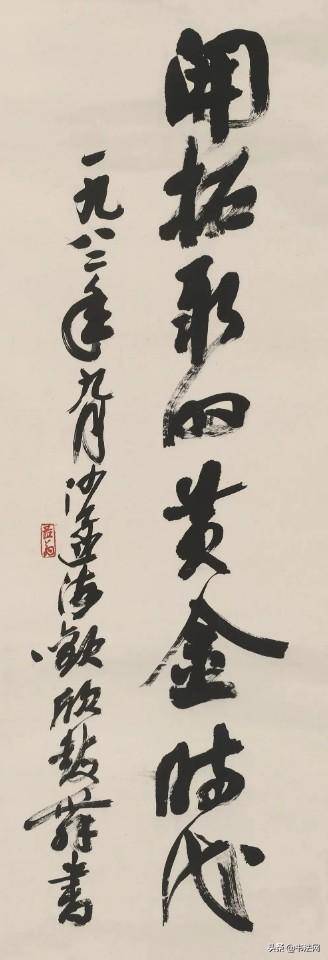 開拓新的黄金時代
一九八二年九月沙孟海歡欣鼓舞書
头条 @书法网